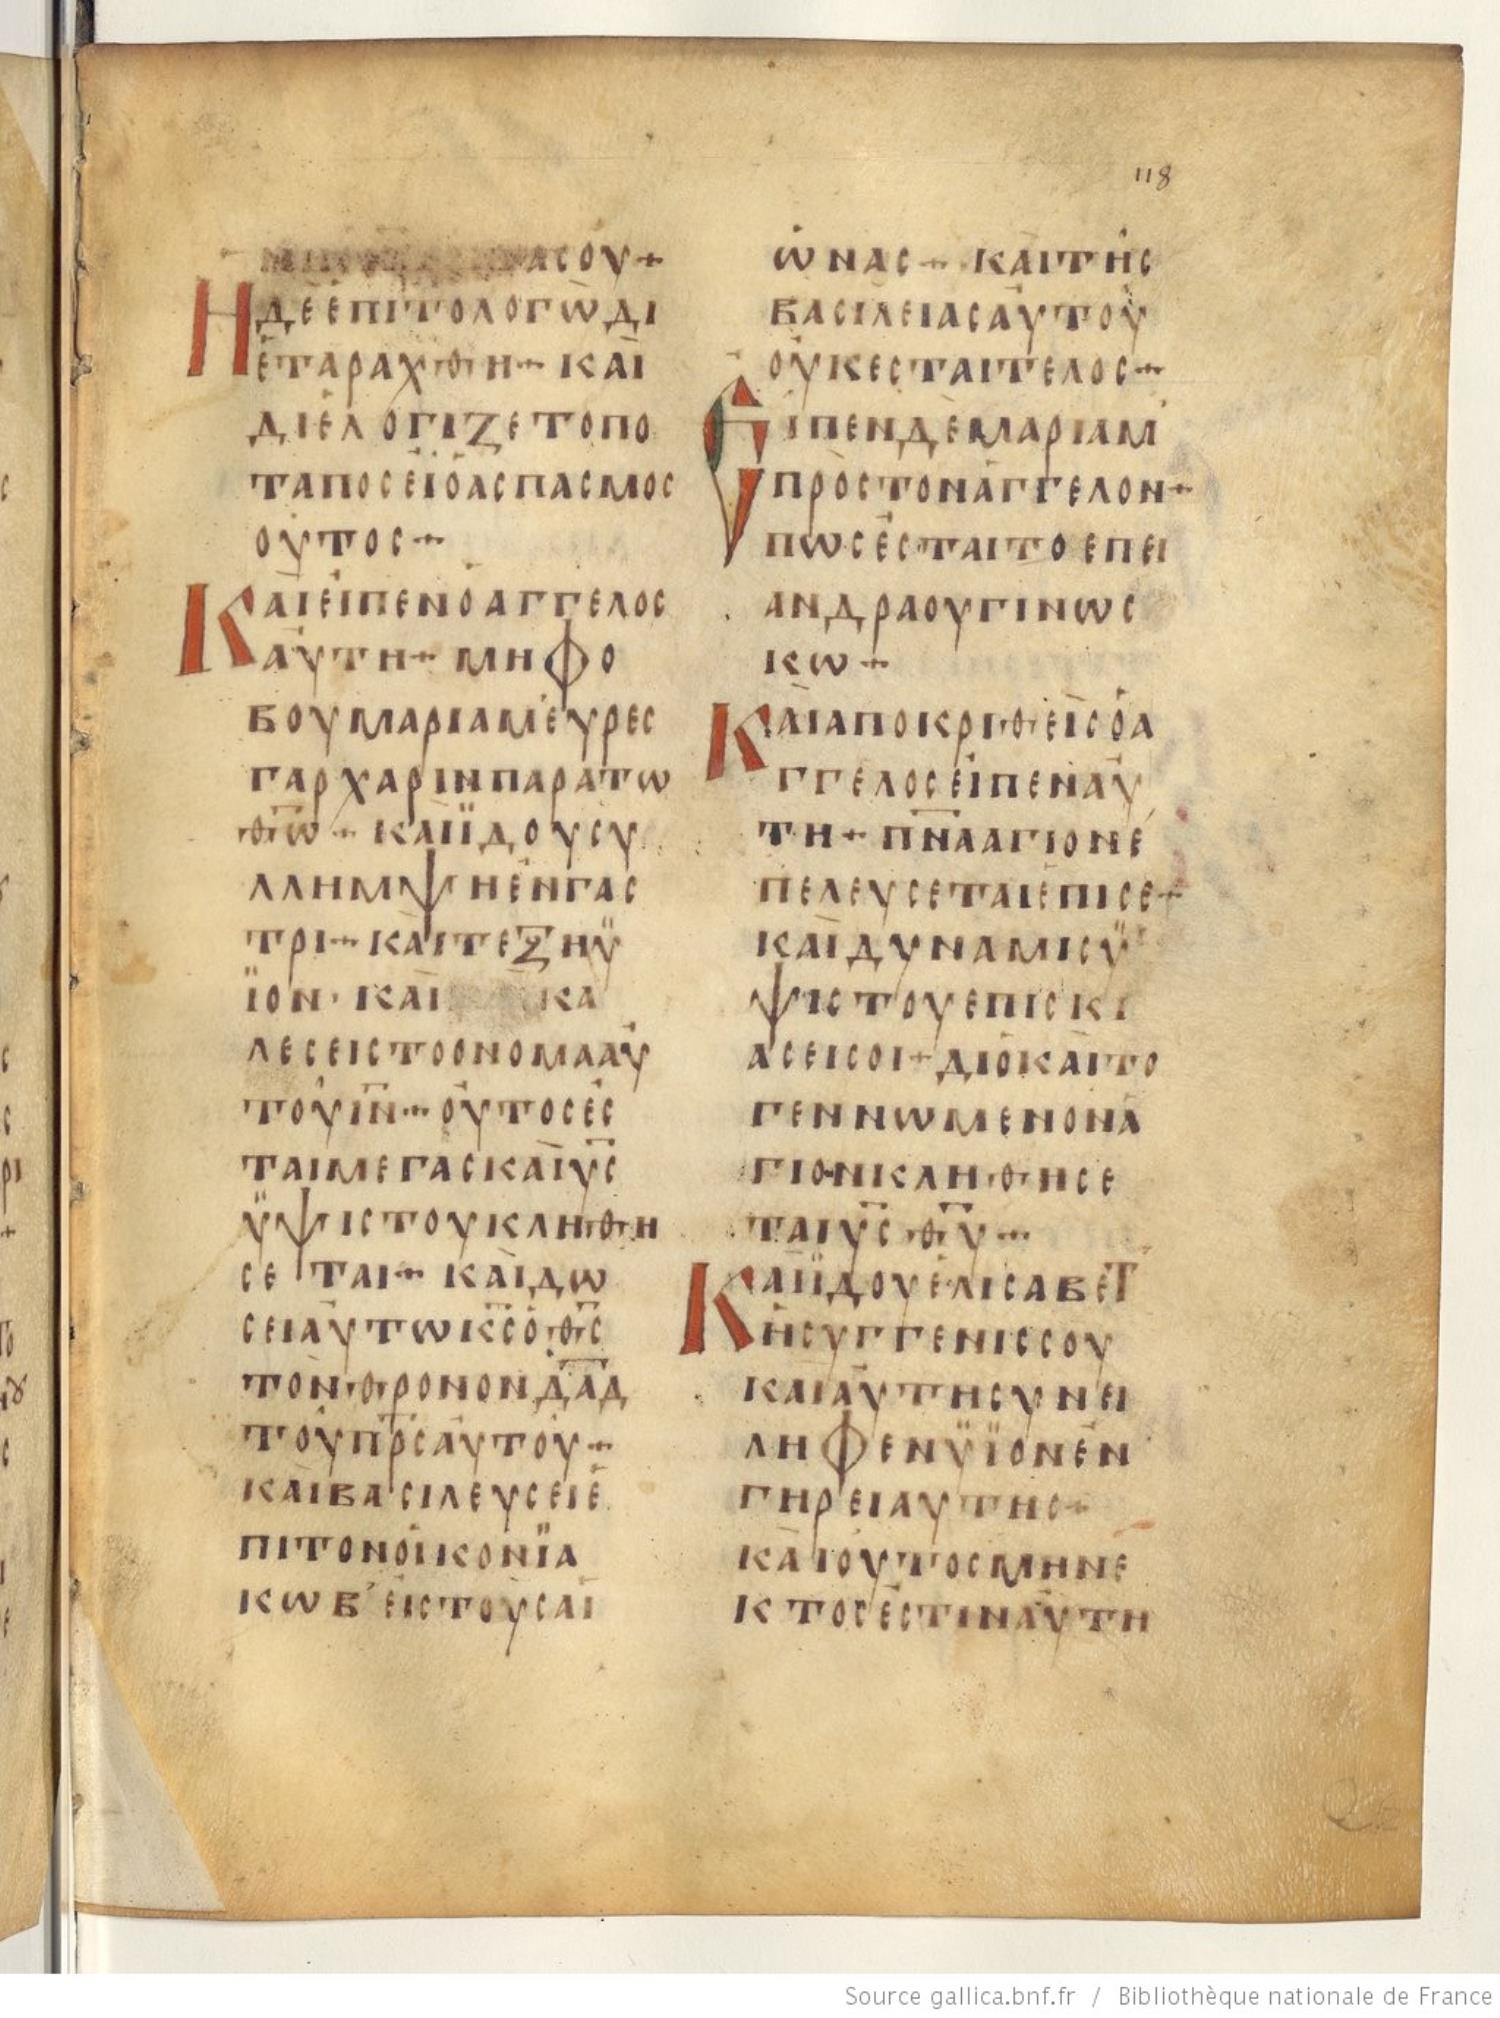 118
ΑСΟΥ+
ΗΔΕΕΠΙΤΟΛΟΓΩΔΙ
ΕΤΑΡΑΧΘΗ+ ΚΑΙ
ΔΙΕΛΟΓΙΖΕΤΟΠΟ
ΤΑΠΟСΕΙΟΑСΠΑСΜΟС
ΟΥΤΟС+
ΚΑΙΕΙΠΕΝΟΑΓΓΕΛΟС
ΑΥΤΗ+ ΜΗΦΟ
ΒΟΥΜΑΡΙΑΜΕΥΡΕС
ΓΑΡΧΑΡΙΝΠΑΡΑΤΩ
Θ̅Ω̅+ ΚΑΙΪΔΟΥСΥ
ΛΛΗΜΨΗΕΝΓΑС
ΤΡΙ+ ΚΑΙΤΕΞΗΫ
ΪΟΝ· ΚΑΙ ΚΑ
ΛΕСΕΙСΤΟΟΝΟΜΑΑΥ
ΤΟΥΙ̅Ν̅+ ΟΥΤΟСΕС
ΤΑΙΜΕΓΑСΚΑΙΥ̅С̅
ΫΨΙСΤΟΥΚΛΗΘΗ
СΕΤΑΙ+ ΚΑΙΔΩ
СΕΙΑΥΤΩΚ̅С̅ΟΘ̅С̅
ΤΟΝΘΡΟΝΟΝΔ̅Α̅Δ̅
ΤΟΥΠ̅Ρ̅С̅ΑΥΤΟΥ+
ΚΑΙΒΑСΙΛΕΥСΕΙΕ
ΠΙΤΟΝΟΙΚΟΝΪΑ
ΚΩΒʼΕΙСΤΟΥСΑΙ
ΩΝΑС+ ΚΑΙΤΗС
ΒΑСΙΛΕΙΑСΑΥΤΟΥ
ΟΥΚΕСΤΑΙΤΕΛΟС+
ΕΙΠΕΝΔΕΜΑΡΙΑΜ
ΠΡΟСΤΟΝΑΓΓΕΛΟΝ+
ΠΩСΕСΤΑΙΤΟΕΠΕΙ
ΑΝΔΡΑΟΥΓΙΝΩС
ΚΩ+
ΚΑΙΑΠΟΚΡΙΘΕΙСΟΑ
ΓΓΕΛΟСΕΙΠΕΝΑΥ
ΤΗ+ Π̅Ν̅Α̅ΑΓΙΟΝΕ
ΠΕΛΕΥСΕΤΑΙΕΠΙСΕ+
ΚΑΙΔΥΝΑΜΙСΫ
ΨΙСΤΟΥΕΠΙСΚΙ
ΑСΕΙСΟΙ+ΔΙΟΚΑΙΤΟ
ΓΕΝΝΩΜΕΝΟΝΑ
ΓΙΟΝΚΛΗΘΗСΕ
ΤΑΙΥ̅С̅Θ̅Υ̅+
ΚΑΙΪΔΟΥΕΛΙСΑΒΕΤ
ΗСΥΓΓΕΝΙССΟΥ
ΚΑΙΑΥΤΗСΥΝΕΙ
ΛΗΦΕΝΫΪΟΝΕΝ
ΓΗΡΕΙΑΥΤΗС+
ΚΑΙΟΥΤΟСΜΗΝΕ
ΚΤΟСΕСΤΙΝΑΥΤΗ
Source gallica.bnf.fr / Bibliothèque nationale de France